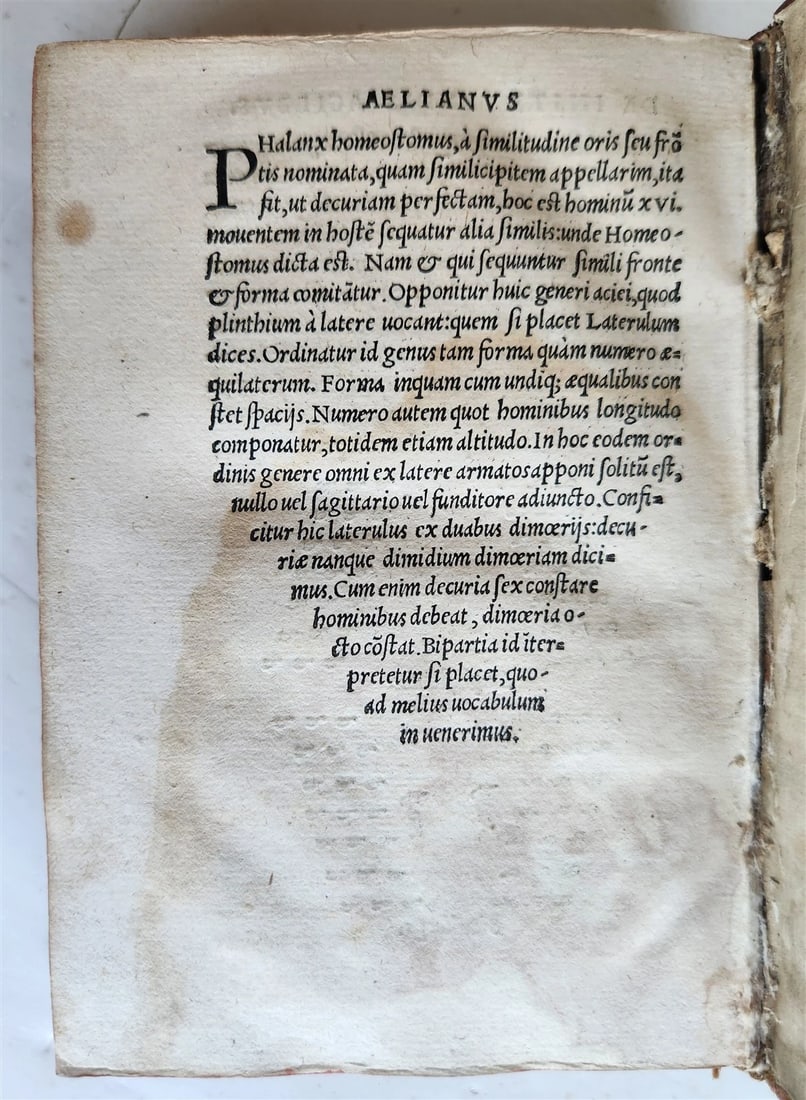 AELIANVS
PHalanx homeostomus,à similitudine oris seu frō
tis nominata,quam similicipitem appellarim,ita
fit,ut decuriam perfectam,hoc est hominū xvi.
mouentem in hostē sequatur alia similis:unde Homeo-
stomus dicta est. Nam & qui sequuntur simili fronte
& forma comitātur.Opponitur huic generi aciei,quod
plinthium à latere uocant:quem si placet Laterulum
dices.Ordinatur id genus tam forma quàm numero æ=
quilaterum. Forma inquam cum undiq; æqualibus con
stet spacijs.Numero autem quot hominibus longitudo
componatur,totidem etiam altitudo.In hoc eodem or=
dinis genere omni ex latere armatos apponi solitū est,
nullo uel sagittario uel funditore adiuncto.Confi=
citur hic laterulus ex duabus dimœrijs:decu-
riæ nanque dimidium dimœriam dici=
mus.Cum enim decuria sex constare
hominibus debeat, dimœria o-
cto cōstat.Bipartia id īter=
pretetur si placet,quo-
ad melius uocabulum
in uenerimus.